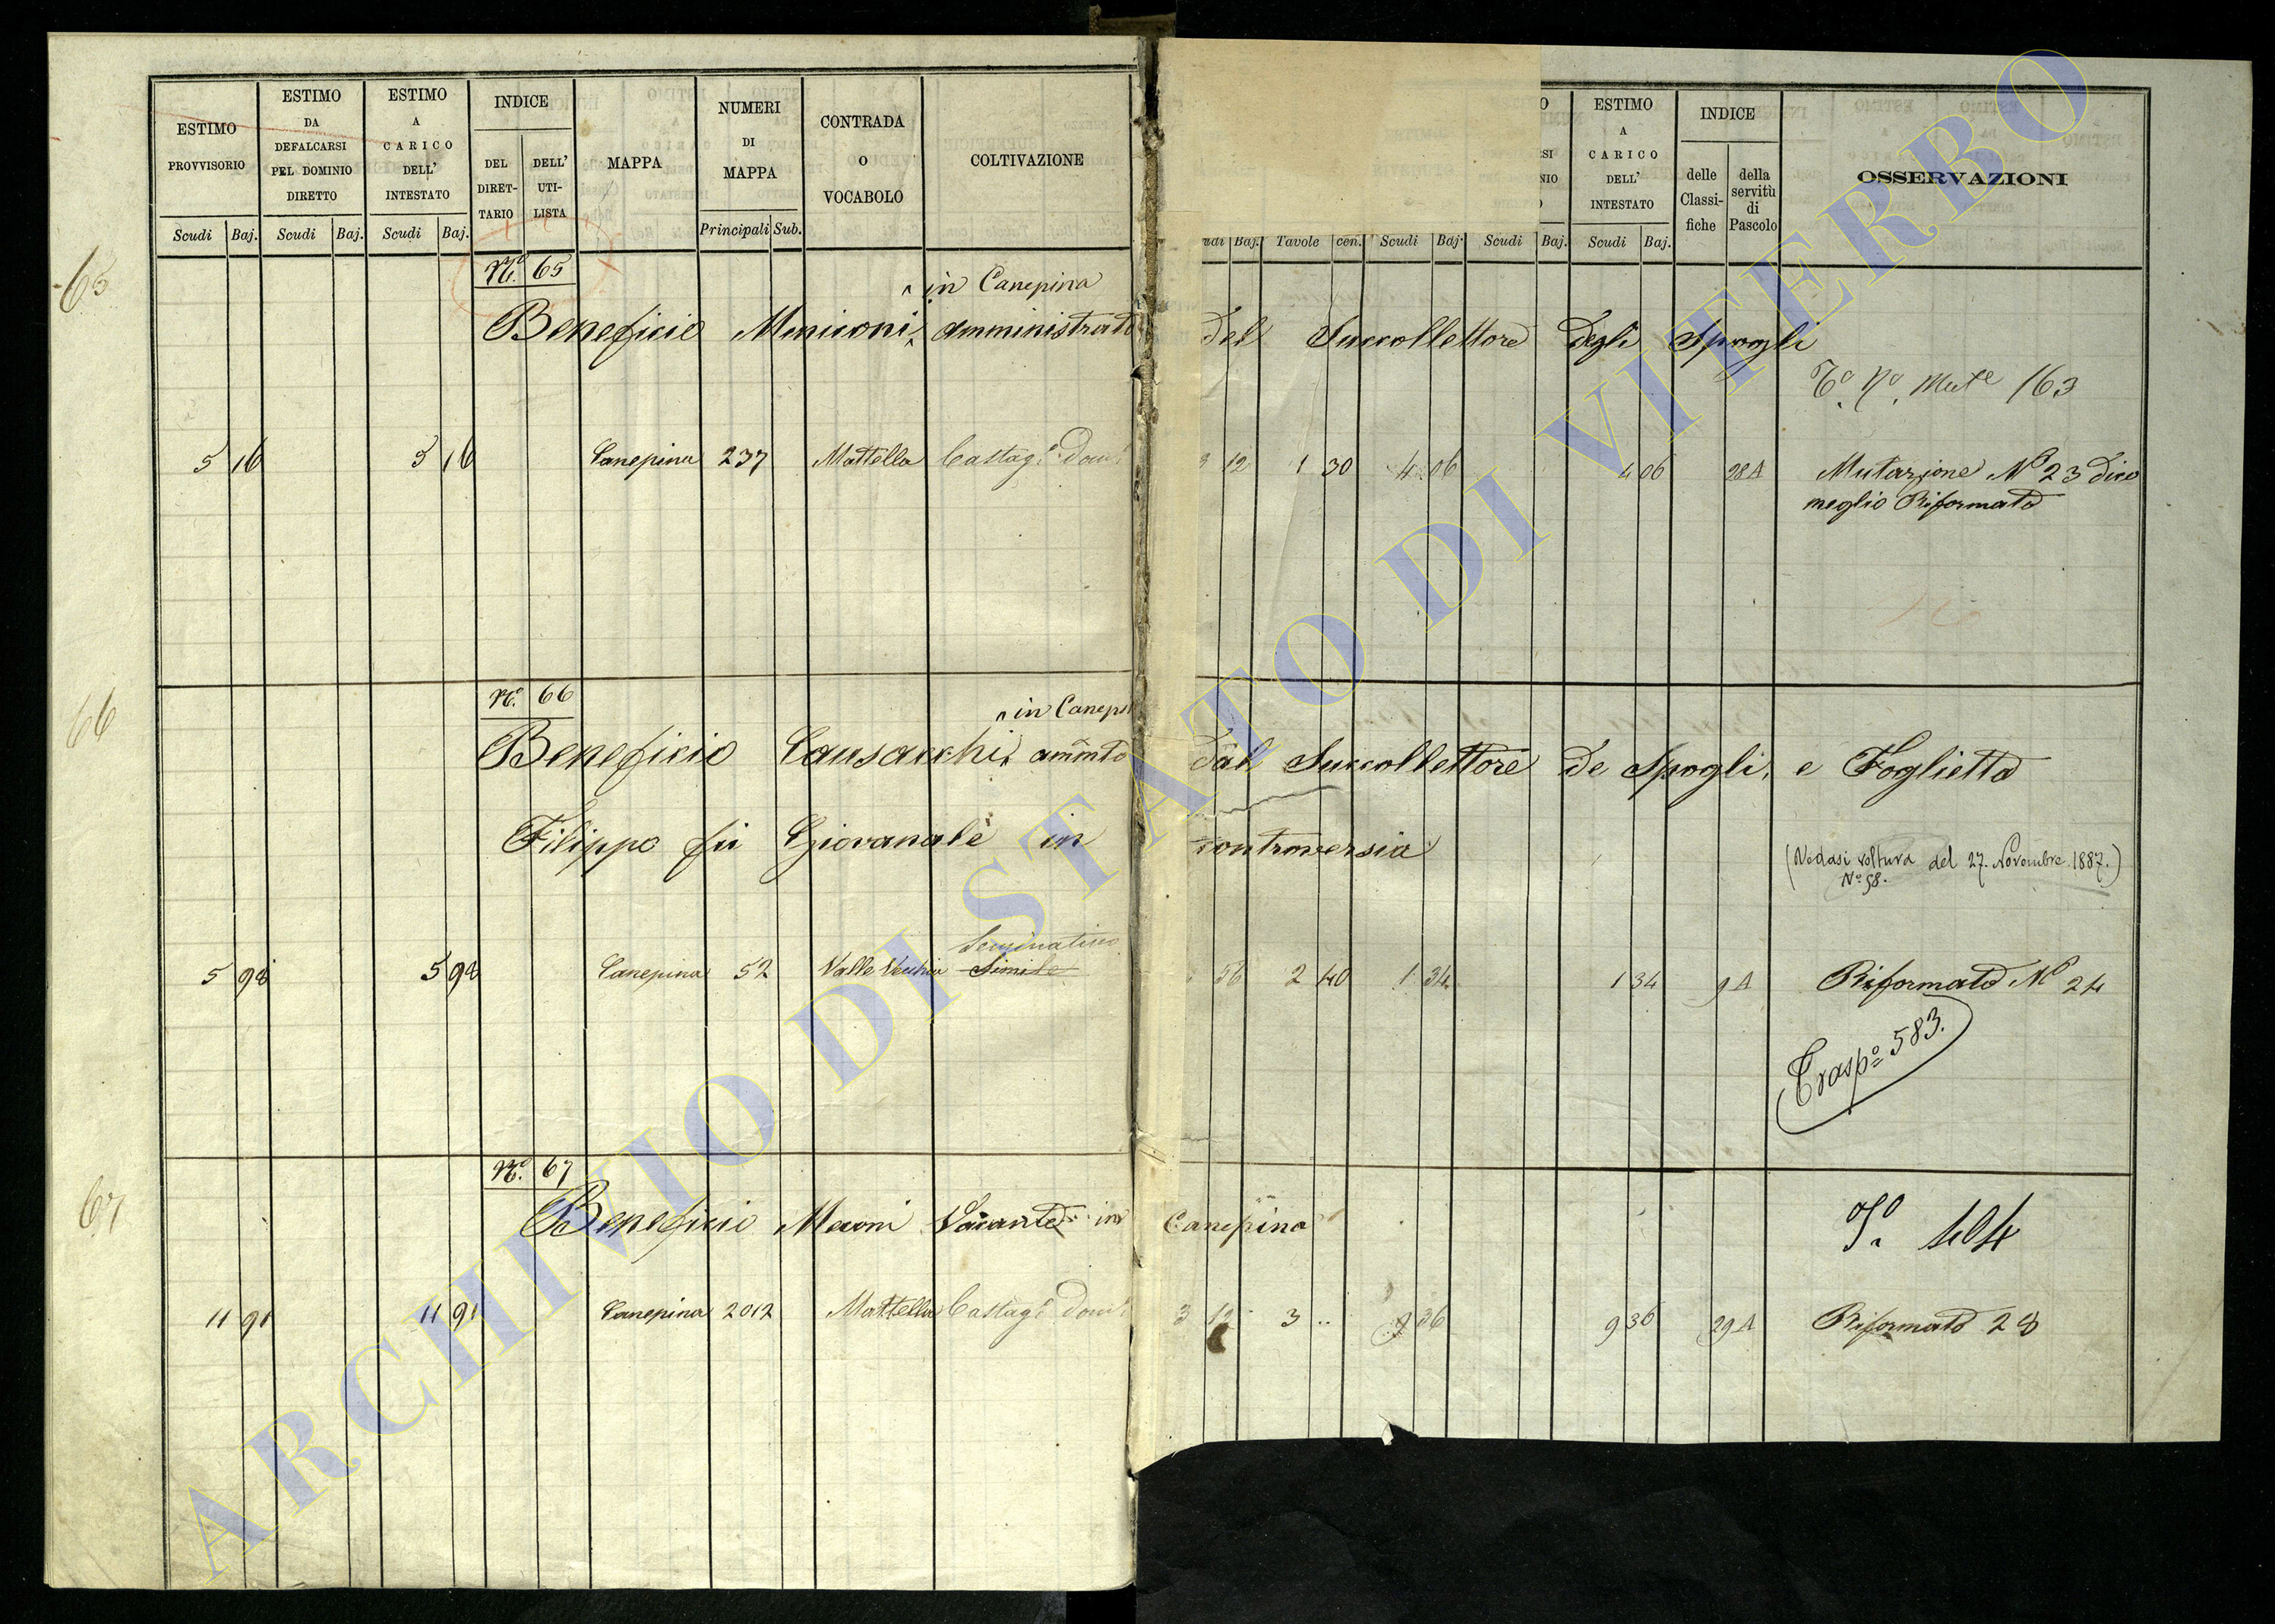 ESTIMO PROVVISORIO
ESTIMO DA DEFALCARSI PEL DOMINIO DIRETTO
ESTIMO A CARICO DELL' INTESTATO
INDICE
DEL DIRETTARIO
DELL' UTILISTA
MAPPA
NUMERI DI MAPPA
CONTRADA O VOCABOLO
COLTIVAZIONE
ESTIMO A CARICO DELL' INTESTATO
INDICE
delle Classifiche
della servitù di Pascolo
OSSERVAZIONI
Scudi Baj. Scudi Baj. Scudi Baj. Principali Sub. Baj. Tavole cen. Scudi Baj. Scudi Baj. Scudi Baj.
65
N.º 65
in Canepina
Beneficio Meniconi, amministrato del Succollettore degli Spogli
163
5 16 5 16 Canepina 237 Mattella Castag. Dom. 12 1 30 4 06 4 06 28 A Mutazione Nº 23 dico
meglio Riformato
66
N.º 66
in Canep
Beneficio Causacchi ammto dal Succollettore de Spogli, e Foglietta
Filippo fu Giovanale in controversia
(Vedasi voltura del 27. Novembre 1887.)
Nº 58.
Seminativo
5 98 5 98 Canepina 52 Valle Vecchia Simile 56 2 40 1 34 1 34 9 A Riformato Nº 24
Trasp.º 583.
67
N.º 67
Beneficio Meconi Vacante in Canepina
Tº 404
11 91 11 91 Canepina 2012 Mattella Castag. Dom. 3 12 3 .. 9 36 9 36 29 A Riformato 28
ARCHIVIO DI STATO DI VITERBO